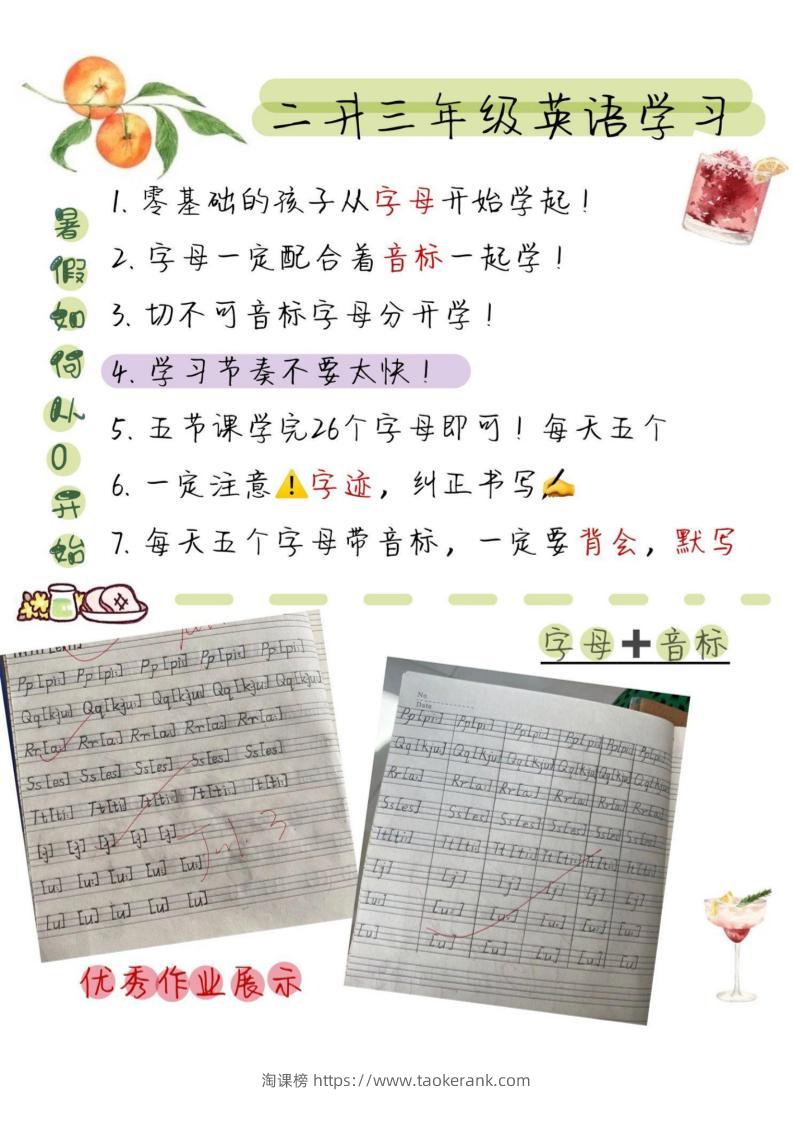 二升三年级英语学习
暑假如何从0开始
1. 零基础的孩子从字母开始学起！
2. 字母一定配合着音标一起学！
3. 切不可音标字母分开学！
4. 学习节奏不要太快！
5. 五节课学完26个字母即可！每天五个
6. 一定注意⚠️字迹，纠正书写✍️
7. 每天五个字母带音标，一定要背会，默写
字母➕音标
Pp[pi:] Pp[pi:] Pp[pi:] Pp[pi:] Pp[pi:]
Qq[kju:] Qq[kju:] Qq[kju:] Qq[kju:] Qq[kju:]
Rr[a:] Rr[a:] Rr[a:] Rr[a:] Rr[a:]
Ss[es] Ss[es] Ss[es] Ss[es] Ss[es]
Tt[ti:] Tt[ti:] Tt[ti:] Tt[ti:] Tt[ti:]
[j] [j] [j] [j] [j]
[u:] [u:] [u:] [u:] [u:]
[u] [u] [u] [u] [u]
No.
Date
Pp[pi:] Pp[pi:] Pp[pi:] Pp[pi:] Pp[pi:] Pp[pi:]
Qq[kju:] Qq[kju:] Qq[kju:] Qq[kju:] Qq[kju:] Qq[kju:]
Rr[a:] Rr[a:] Rr[a:] Rr[a:] Rr[a:] Rr[a:]
Ss[es] Ss[es] Ss[es] Ss[es] Ss[es] Ss[es]
Tt[ti:] Tt[ti:] Tt[ti:] Tt[ti:] Tt[ti:] Tt[ti:]
[j] [j] [j] [j] [j] [j]
[u:] [u:] [u:] [u:] [u:] [u:]
[u] [u] [u] [u] [u] [u]
优秀作业展示
淘课榜 https://www.taokerank.com